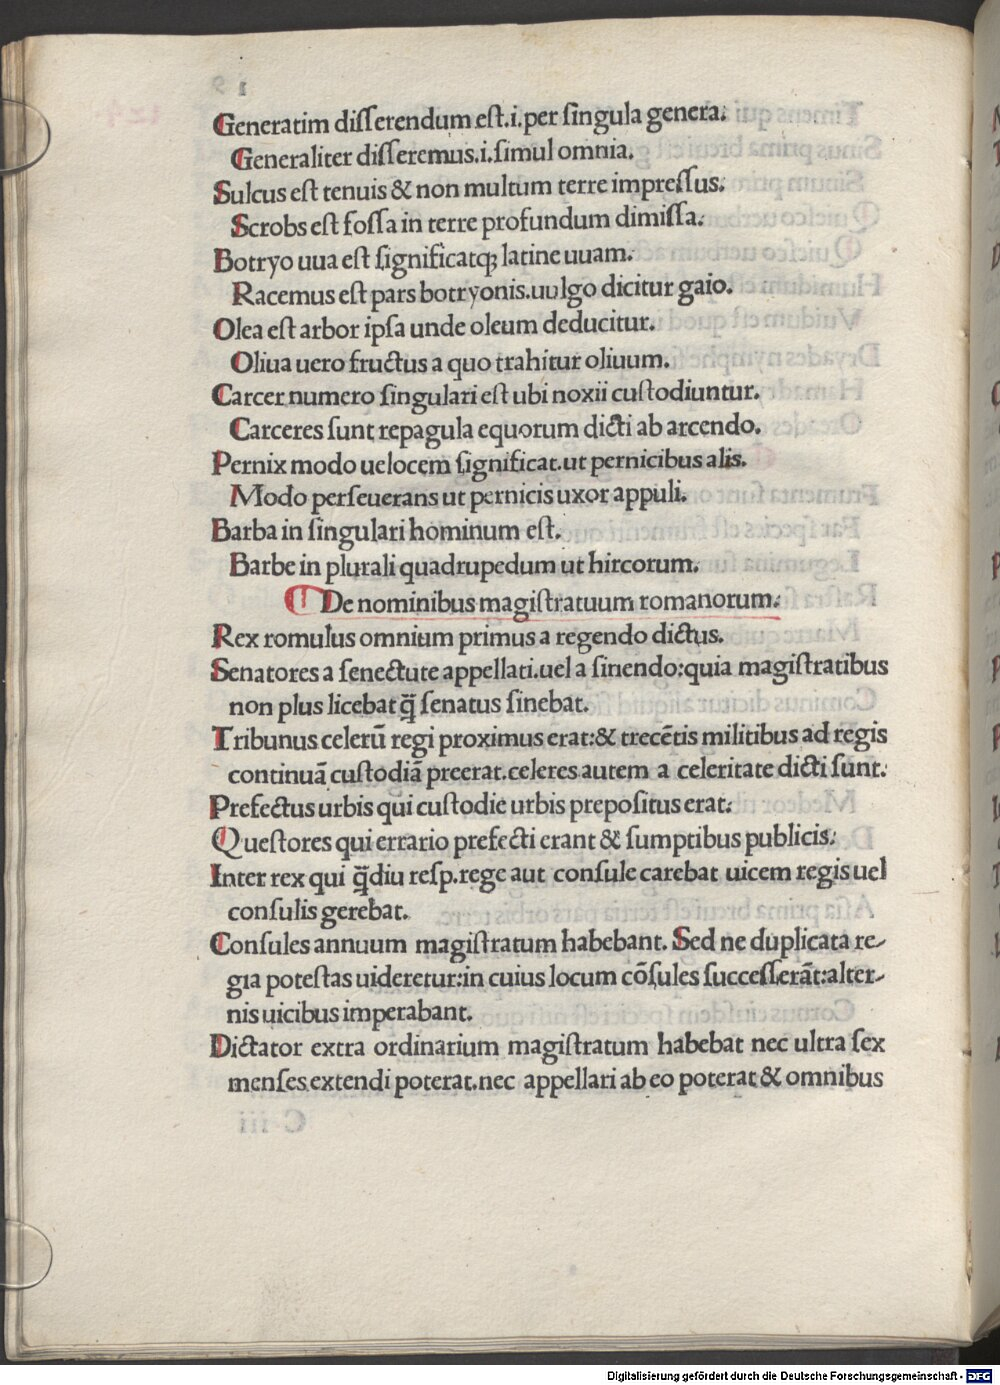 Generatim disserendum est.i.per singula genera.
Generaliter disseremus.i.simul omnia.
Sulcus est tenuis & non multum terre impressus.
Scrobs est fossa in terre profundum dimissa.
Botryo uua est significatqꝫ latine uuam.
Racemus est pars botryonis.uulgo dicitur gaio.
Olea est arbor ipsa unde oleum deducitur.
Oliua uero fructus a quo trahitur oliuum.
Carcer numero singulari est ubi noxii custodiuntur.
Carceres sunt repagula equorum dicti ab arcendo.
Pernix modo uelocem significat.ut pernicibus alis.
Modo perseuerans ut pernicis uxor appuli.
Barba in singulari hominum est.
Barbe in plurali quadrupedum ut hircorum.
De nominibus magistratuum romanorum.
Rex romulus omnium primus a regendo dictus.
Senatores a senectute appellati.uel a sinendo:quia magistratibus
non plus licebat q̄ senatus sinebat.
Tribunus celerū regi proximus erat:& trecētis militibus ad regis
continuā custodiā preerat.celeres autem a celeritate dicti sunt.
Prefectus urbis qui custodie urbis prepositus erat.
Questores qui errario prefecti erant & sumptibus publicis.
Inter rex qui q̄diu resp.rege aut consule carebat uicem regis uel
consulis gerebat.
Consules annuum magistratum habebant. Sed ne duplicata re-
gia potestas uideretur:in cuius locum cōsules successerāt:alter-
nis uicibus imperabant.
Dictator extra ordinarium magistratum habebat nec ultra sex
menses extendi poterat.nec appellari ab eo poterat & omnibus
Digitalisierung gefördert durch die Deutsche Forschungsgemeinschaft - DFG